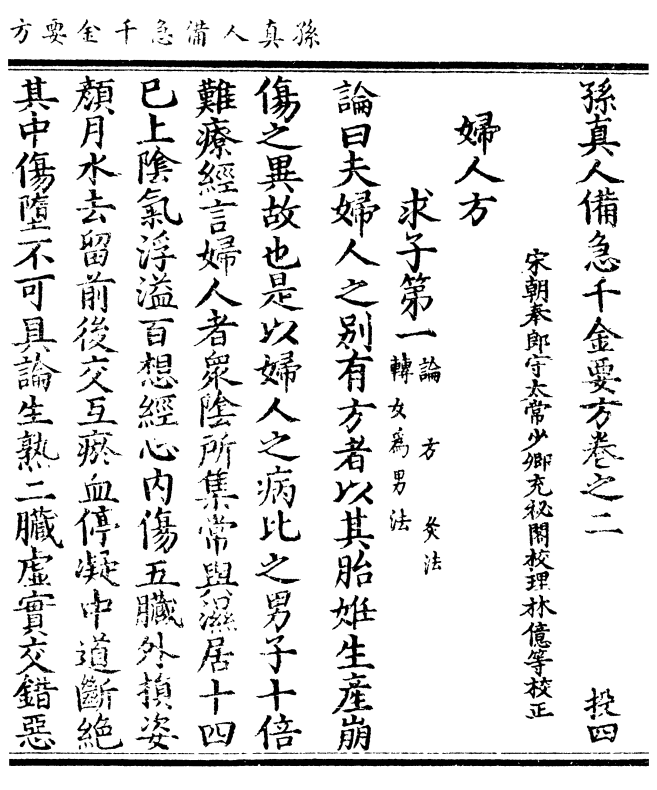 孫真人備急千金要方
孫真人備急千金要方卷之二 投四
宋朝奉郎守太常少卿充秘閣校理林億等校正
婦人方
求子第一 論 方 灸法
轉女爲男法
論曰夫婦人之别有方者以其胎妊生産崩
傷之異故也是以婦人之病比之男子十倍
難療經言婦人者衆隂所集常與濕居十四
巳上隂氣浮溢百想經心内傷五臟外損姿
顔月水去留前後交互瘀血停凝中道斷絶
其中傷墮不可具論生熟二臟虚實交錯惡